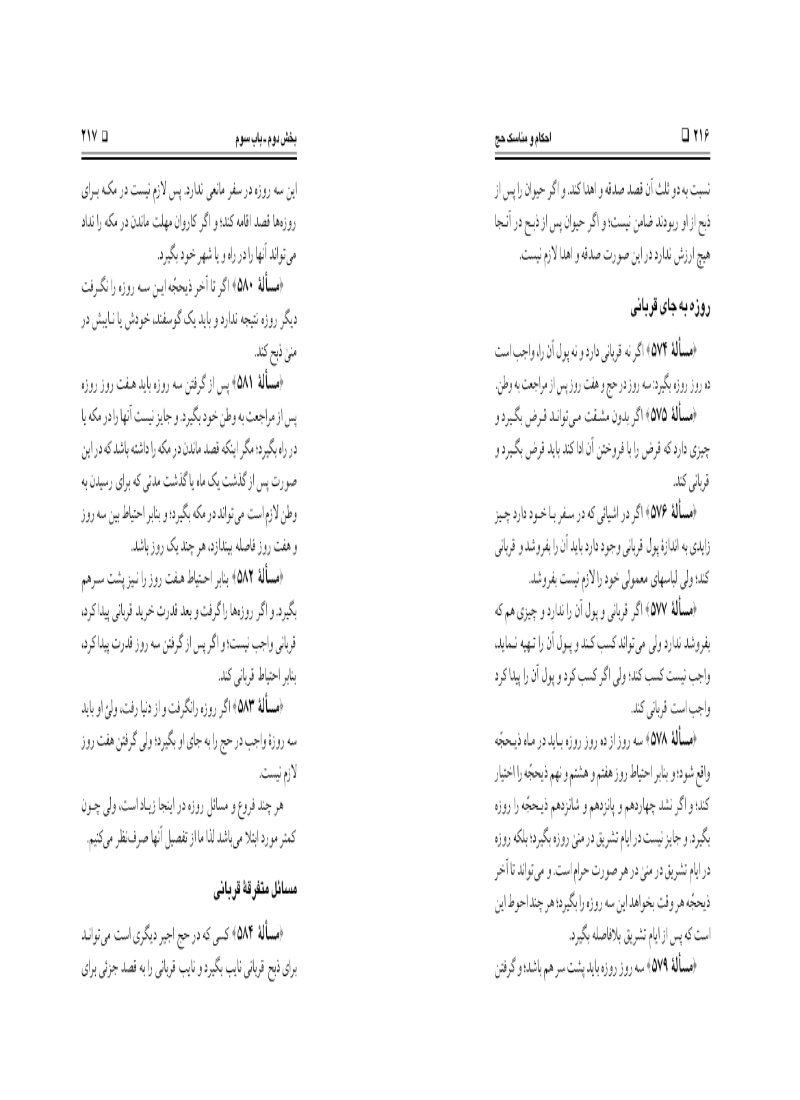 ۲۱۶ ❑ احکام و مناسک حج
نسبت به دو ثلث آن قصد صدقه و اهدا کند. و اگر حیوان را پس از
ذبح از او ربودند ضامن نیست؛ و اگر حیوان پس از ذبح در آنجا
هیچ ارزش ندارد در این صورت صدقه و اهدا لازم نیست.
روزه به جای قربانی
﴿مسألهٔ ۵۷۴﴾ اگر نه قربانی دارد و نه پول آن را، واجب است
ده روز روزه بگیرد: سه روز در حج و هفت روز پس از مراجعت به وطن.
﴿مسألهٔ ۵۷۵﴾ اگر بدون مشقت می‌تواند قرض بگیرد و
چیزی دارد که قرض را با فروختن آن ادا کند باید قرض بگیرد و
قربانی کند.
﴿مسألهٔ ۵۷۶﴾ اگر در اشیائی که در سفر با خود دارد چیز
زایدی به اندازهٔ پول قربانی وجود دارد باید آن را بفروشد و قربانی
کند؛ ولی لباسهای معمولی خود را لازم نیست بفروشد.
﴿مسألهٔ ۵۷۷﴾ اگر قربانی و پول آن را ندارد و چیزی هم که
بفروشد ندارد ولی می‌تواند کسب کند و پول آن را تهیه نماید،
واجب نیست کسب کند؛ ولی اگر کسب کرد و پول آن را پیدا کرد
واجب است قربانی کند.
﴿مسألهٔ ۵۷۸﴾ سه روز از ده روز روزه باید در ماه ذیحجّه
واقع شود؛ و بنابر احتیاط روز هفتم و هشتم و نهم ذیحجّه را اختیار
کند؛ و اگر نشد چهاردهم و پانزدهم و شانزدهم ذیحجّه را روزه
بگیرد. و جایز نیست در ایام تشریق در منیٰ روزه بگیرد؛ بلکه روزه
در ایام تشریق در منیٰ در هر صورت حرام است. و می‌تواند تا آخر
ذیحجّه هر وقت بخواهد این سه روزه را بگیرد؛ هر چند احوط این
است که پس از ایام تشریق بلافاصله بگیرد.
﴿مسألهٔ ۵۷۹﴾ سه روز روزه باید پشت سر هم باشد؛ و گرفتن
بخش دوم ـ باب سوم ❑ ۲۱۷
این سه روزه در سفر مانعی ندارد. پس لازم نیست در مکه برای
روزه‌ها قصد اقامه کند؛ و اگر کاروان مهلت ماندن در مکه را نداد
می‌تواند آنها را در راه و یا شهر خود بگیرد.
﴿مسألهٔ ۵۸۰﴾ اگر تا آخر ذیحجّه این سه روزه را نگرفت
دیگر روزه نتیجه ندارد و باید یک گوسفند، خودش یا نایبش در
منیٰ ذبح کند.
﴿مسألهٔ ۵۸۱﴾ پس از گرفتن سه روزه باید هفت روز روزه
پس از مراجعت به وطن خود بگیرد. و جایز نیست آنها را در مکه یا
در راه بگیرد؛ مگر اینکه قصد ماندن در مکه را داشته باشد که در این
صورت پس از گذشت یک ماه یا گذشت مدتی که برای رسیدن به
وطن لازم است می‌تواند در مکه بگیرد؛ و بنابر احتیاط بین سه روز
و هفت روز فاصله بیندازد، هر چند یک روز باشد.
﴿مسألهٔ ۵۸۲﴾ بنابر احتیاط هفت روز را نیز پشت سرهم
بگیرد. و اگر روزه‌ها را گرفت و بعد قدرت خرید قربانی پیدا کرد،
قربانی واجب نیست؛ و اگر پس از گرفتن سه روز قدرت پیدا کرد،
بنابر احتیاط قربانی کند.
﴿مسألهٔ ۵۸۳﴾ اگر روزه را نگرفت و از دنیا رفت، ولیّ او باید
سه روزهٔ واجب در حج را به جای او بگیرد؛ ولی گرفتن هفت روز
لازم نیست.
هر چند فروع و مسائل روزه در اینجا زیاد است، ولی چون
کمتر مورد ابتلا می‌باشد لذا ما از تفصیل آنها صرف‌نظر می‌کنیم.
مسائل متفرقهٔ قربانی
﴿مسألهٔ ۵۸۴﴾ کسی که در حج اجیر دیگری است می‌تواند
برای ذبح قربانی نایب بگیرد و نایب قربانی را به قصد جزئی برای